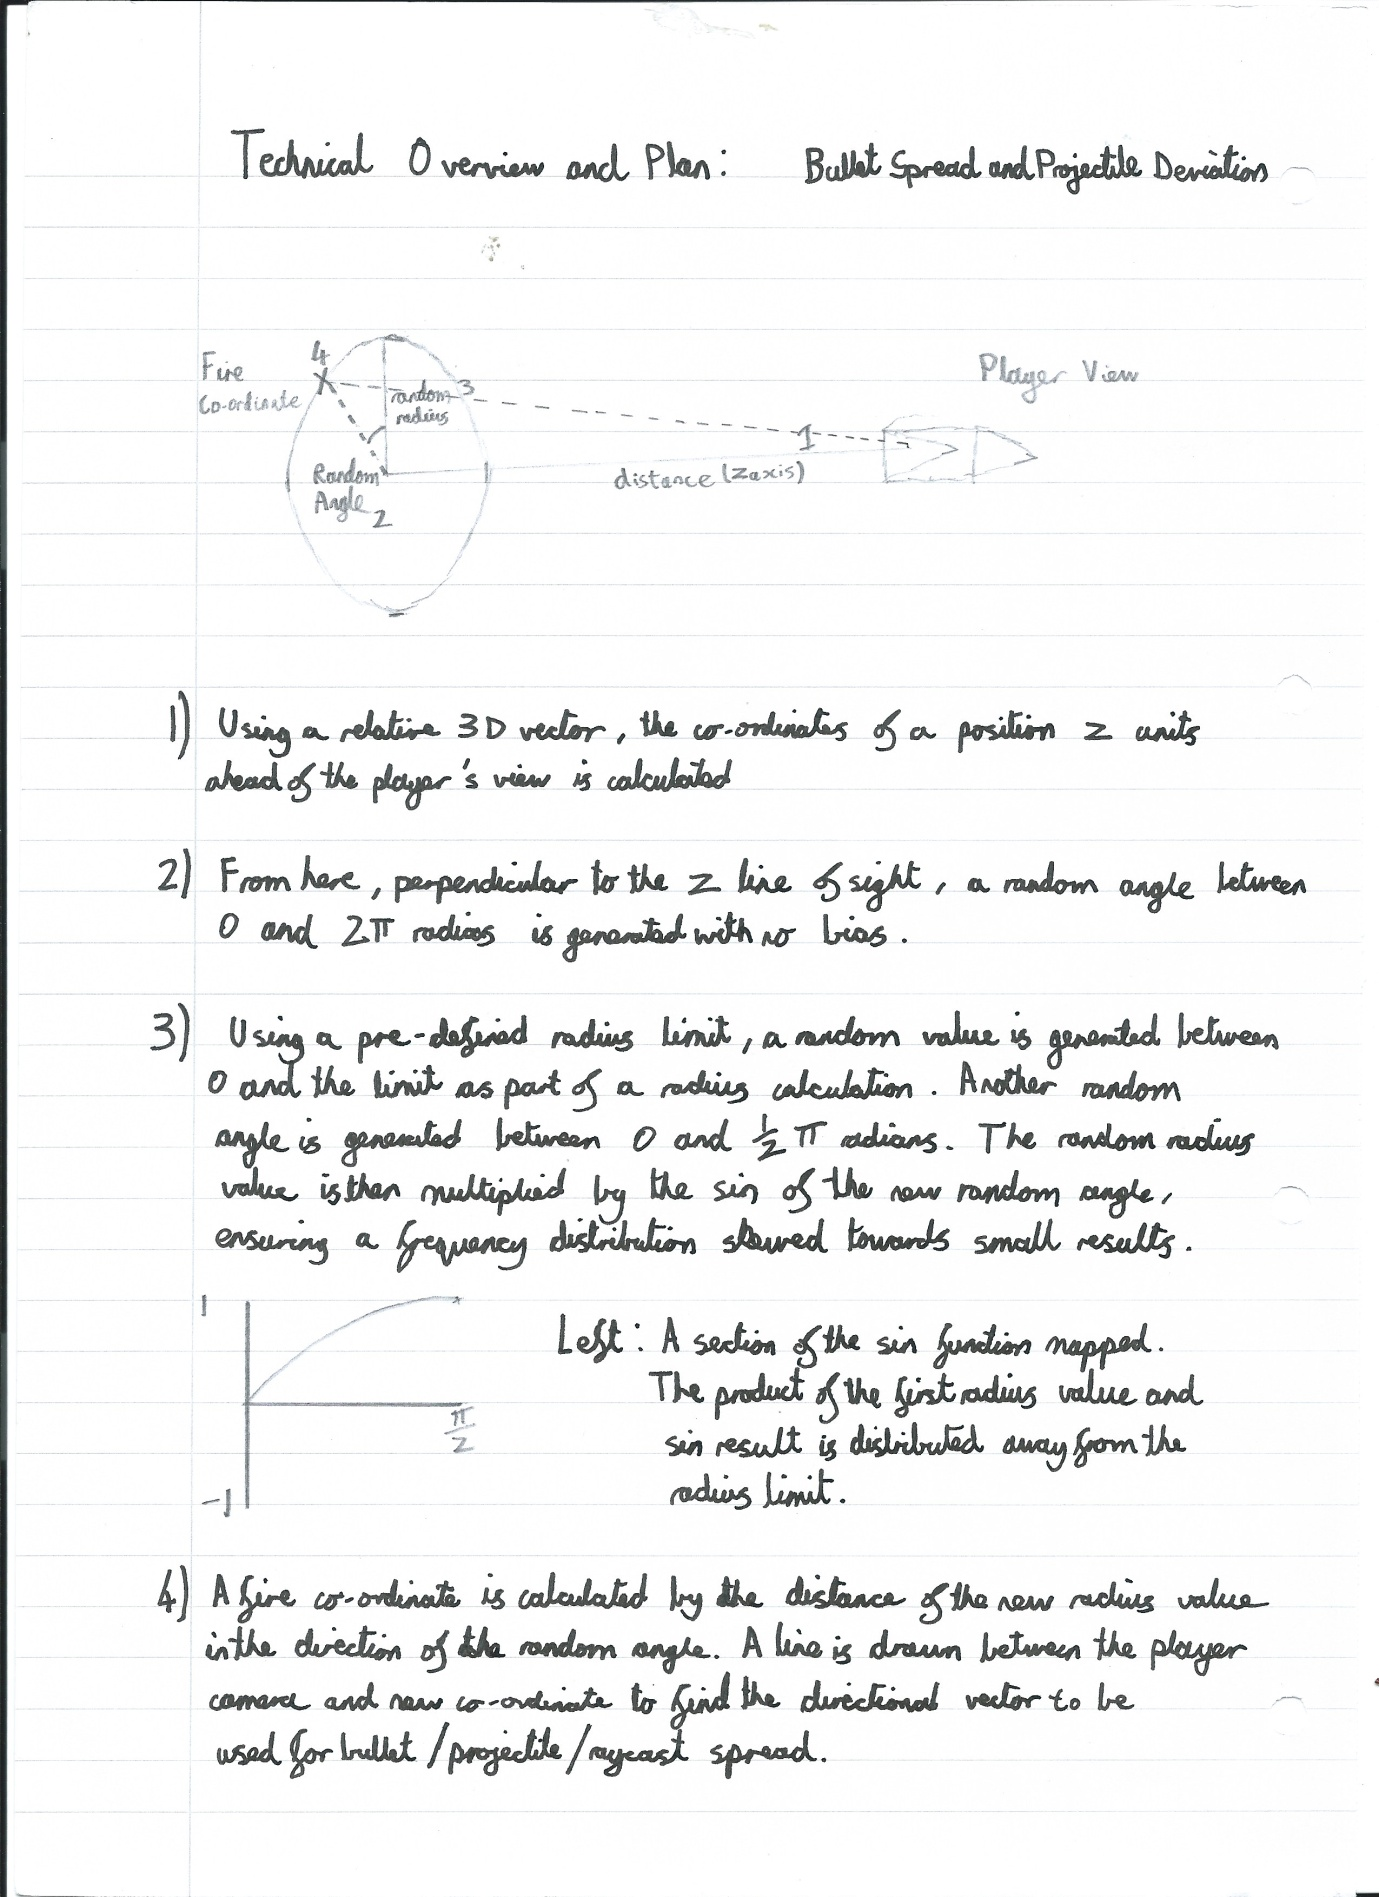 Technical Overview and Plan: Bullet Spread and Projectile Deviation
4
Fire
Co-ordinate
random
radius
3
Player View
1
distance (Z axis)
Random
Angle
2
1) Using a relative 3D vector, the co-ordinates of a position z units
ahead of the player's view is calculated
2) From here, perpendicular to the z line of sight, a random angle between
0 and 2π radians is generated with no bias.
3) Using a pre-defined radius limit, a random value is generated between
0 and the limit as part of a radius calculation. Another random
angle is generated between 0 and ½ π radians. The random radius
value is then multiplied by the sin of the new random angle,
ensuring a frequency distribution skewed towards small results.
1
π/2
-1
Left: A section of the sin function mapped.
The product of the first radius value and
sin result is distributed away from the
radius limit.
4) A fire co-ordinate is calculated by the distance of the new radius value
in the direction of the random angle. A line is drawn between the player
camera and new co-ordinate to find the directional vector to be
used for bullet/projectile/raycast spread.